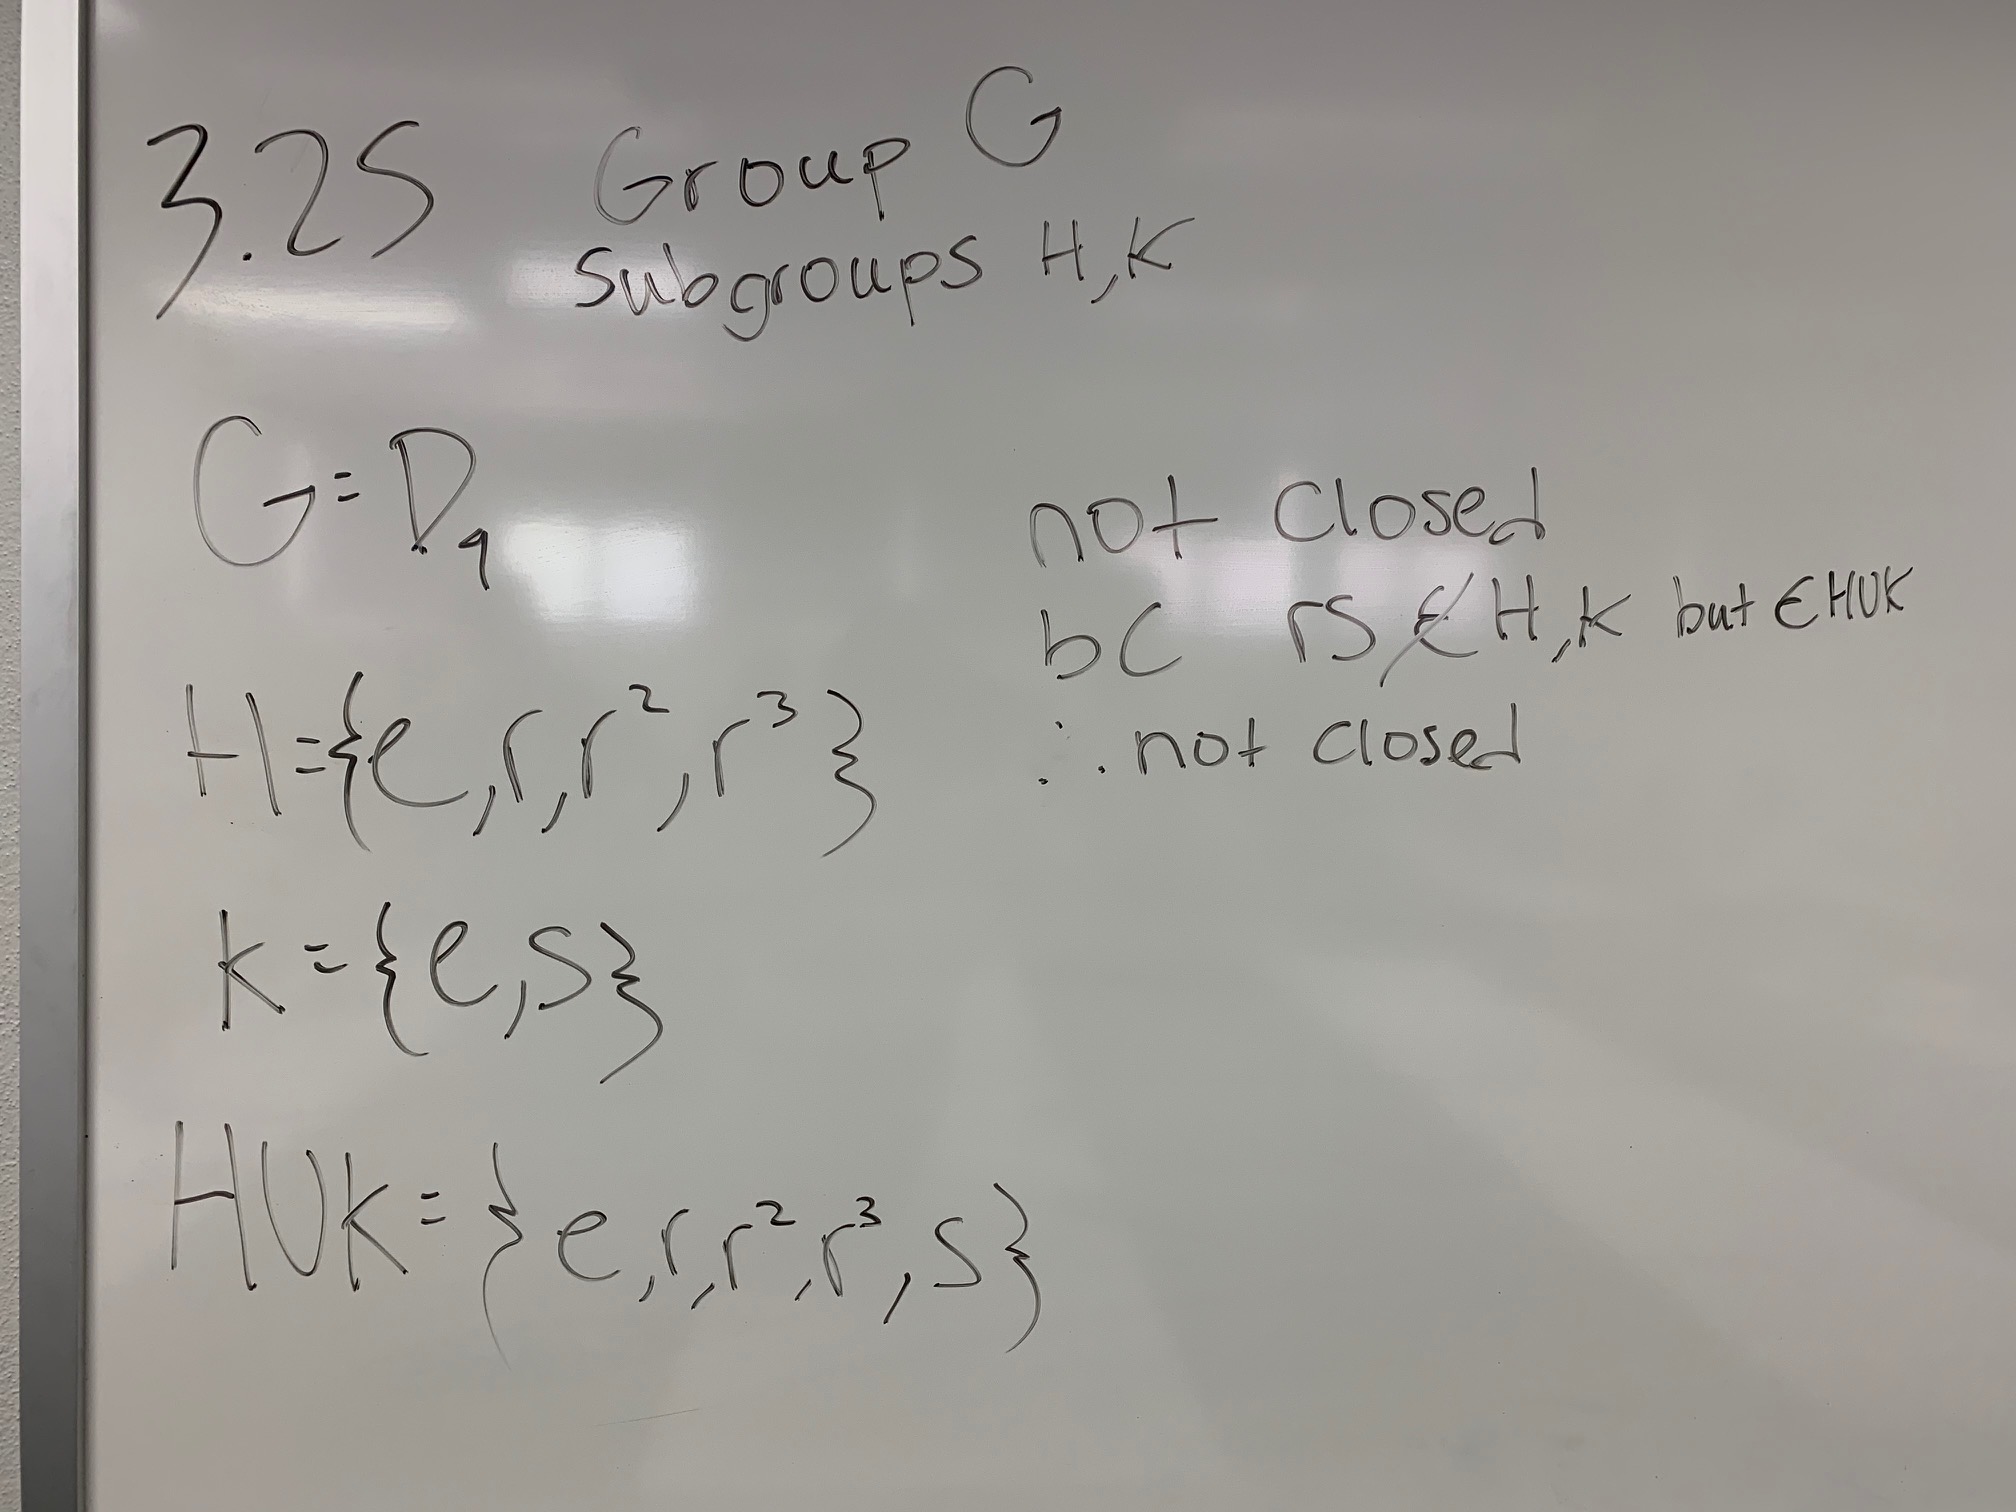 3.25 Group G
Subgroups H, K
G = D₄
H = {e, r, r², r³}
K = {e, s}
HUK = {e, r, r², r³, s}
not closed
bc rs ∉ H, K but ∈ HUK
∴ not closed